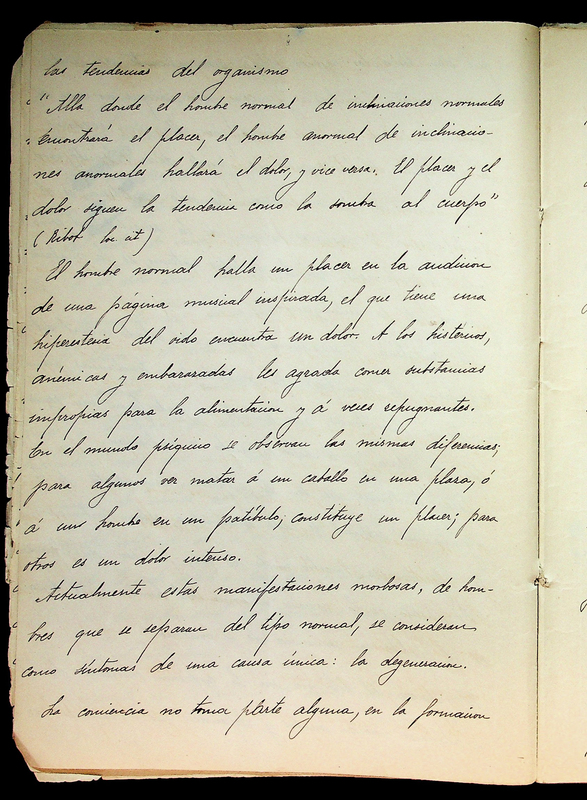 las tendencias del organismo
"Alla donde el hombre normal de inclinaciones normales
encontrará el placer, el hombre anormal de inclinacio-
nes anormales hallará el dolor, y vice versa. El placer y el
dolor siguen la tendencia como la sombra al cuerpo"
(Ribot loc cit)
El hombre normal halla un placer en la audicion
de una página musical inspirada, el que tiene una
hiperestesia del oido encuentra un dolor. A los histericos,
anémicas y embarazadas les agrada comer substancias
impropias para la alimentacion y á veces repugnantes.
En el mundo psíquico se observan las mismas diferencias;
para algunos ver matar á un caballo en una plaza, ó
á un hombre en un patíbulo, constituye un placer; para
otros es un dolor intenso.
Actualmente estas manifestaciones morbosas, de hom-
bres que se separan del tipo normal, se consideran
como síntomas de una causa única: la degeneracion.
La conciencia no toma parte alguna, en la formacion